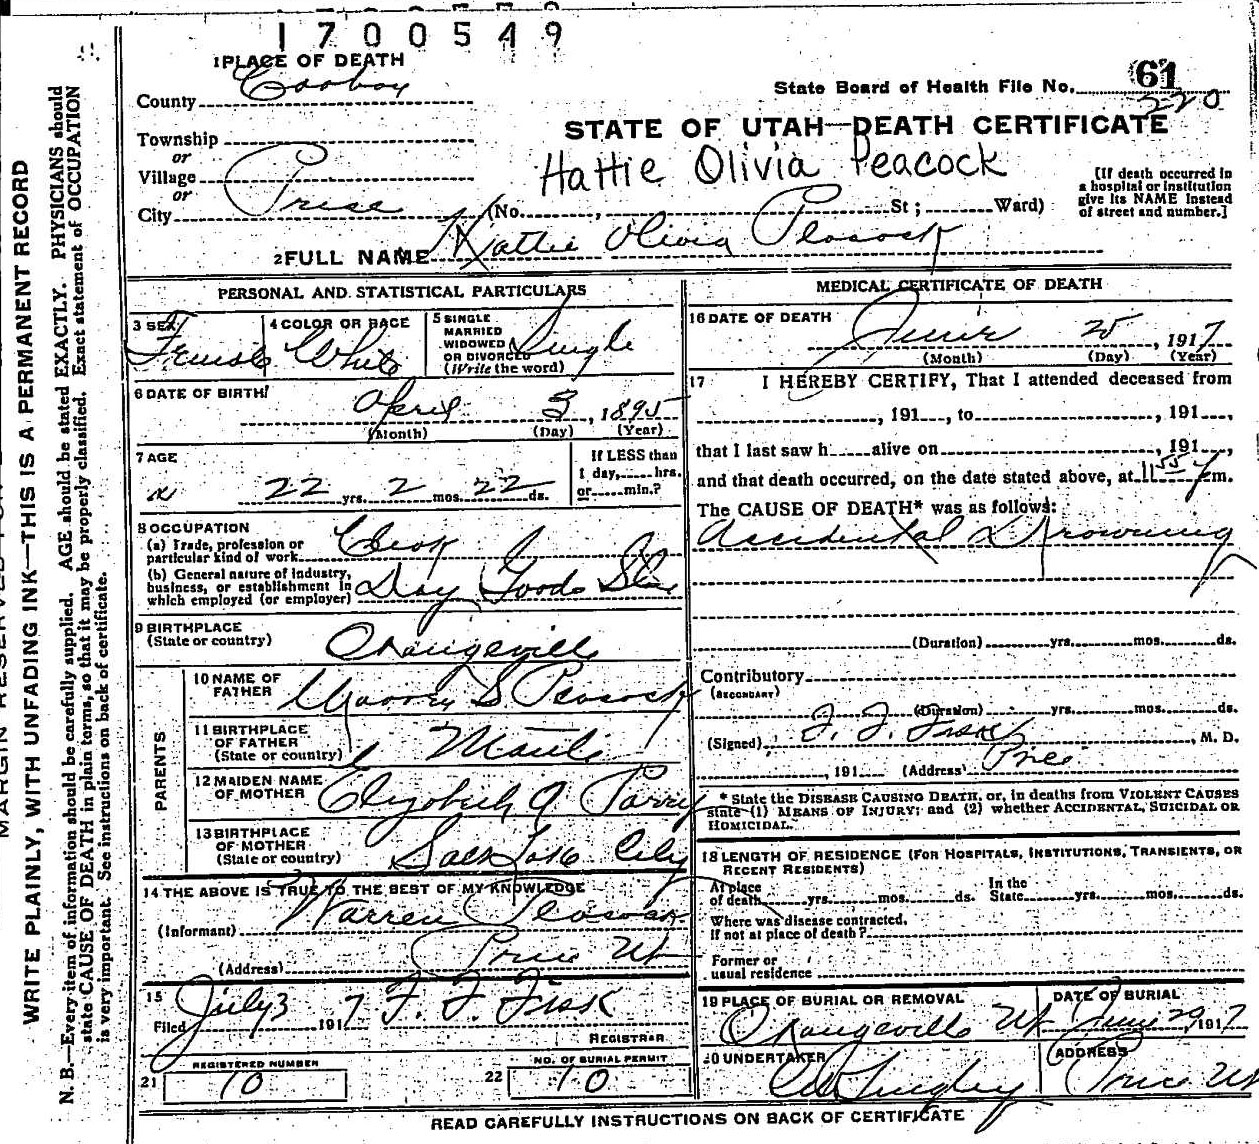 1700549
1 PLACE OF DEATH
County Carbon
State Board of Health File No. 61
220
Township
or
Village
or
City Price
STATE OF UTAH—DEATH CERTIFICATE
Hattie Olivia Peacock
[If death occurred in
a hospital or institution
give its NAME instead
of street and number.]
(No. , St ; Ward)
2 FULL NAME Hattie Olivia Peacock
PERSONAL AND STATISTICAL PARTICULARS
3 SEX Female
4 COLOR OR RACE White
5 SINGLE
MARRIED
WIDOWED
OR DIVORCED
(Write the word) Single
6 DATE OF BIRTH
April 3, 1895
(Month) (Day) (Year)
7 AGE
22 yrs. 2 mos. 22 ds.
If LESS than
1 day, hrs.
or min.?
8 OCCUPATION
(a) Trade, profession or
particular kind of work Clerk
(b) General nature of industry,
business, or establishment in
which employed (or employer) Dry Goods Store
9 BIRTHPLACE
(State or country) Orangeville
PARENTS
10 NAME OF
FATHER Peacock
11 BIRTHPLACE
OF FATHER
(State or country) Manti
12 MAIDEN NAME
OF MOTHER Parry
13 BIRTHPLACE
OF MOTHER
(State or country) Salt Lake City
14 THE ABOVE IS TRUE TO THE BEST OF MY KNOWLEDGE
(Informant) Warren Peacock
(Address) Price Ut
15
Filed July 3 1917 F. F. Fisk
REGISTRAR
21 REGISTERED NUMBER 10
22 NO. OF BURIAL PERMIT 10
MEDICAL CERTIFICATE OF DEATH
16 DATE OF DEATH
June 25, 1917
(Month) (Day) (Year)
17 I HEREBY CERTIFY, That I attended deceased from
, 191 , to , 191 ,
that I last saw h alive on , 191 ,
and that death occurred, on the date stated above, at 11 55 m.
The CAUSE OF DEATH* was as follows:
Accidental Drowning
(Duration) yrs. mos. ds.
Contributory
(SECONDARY)
(Duration) yrs. mos. ds.
(Signed) F. F. Fisk, M. D.
, 191 (Address) Price
* State the DISEASE CAUSING DEATH, or, in deaths from VIOLENT CAUSES
state (1) MEANS OF INJURY; and (2) whether ACCIDENTAL, SUICIDAL OR
HOMICIDAL.
18 LENGTH OF RESIDENCE (FOR HOSPITALS, INSTITUTIONS, TRANSIENTS, OR
RECENT RESIDENTS)
At place
of death yrs. mos. ds.
In the
State yrs. mos. ds.
Where was disease contracted.
If not at place of death?
Former or
usual residence
19 PLACE OF BURIAL OR REMOVAL
Orangeville Ut
DATE OF BURIAL
June 29, 1917
20 UNDERTAKER
ADDRESS
Price Ut
READ CAREFULLY INSTRUCTIONS ON BACK OF CERTIFICATE
WRITE PLAINLY, WITH UNFADING INK—THIS IS A PERMANENT RECORD
N. B.—Every item of information should be carefully supplied. AGE should be stated EXACTLY. PHYSICIANS should
state CAUSE OF DEATH in plain terms, so that it may be properly classified. Exact statement of OCCUPATION
is very important. See instructions on back of certificate.